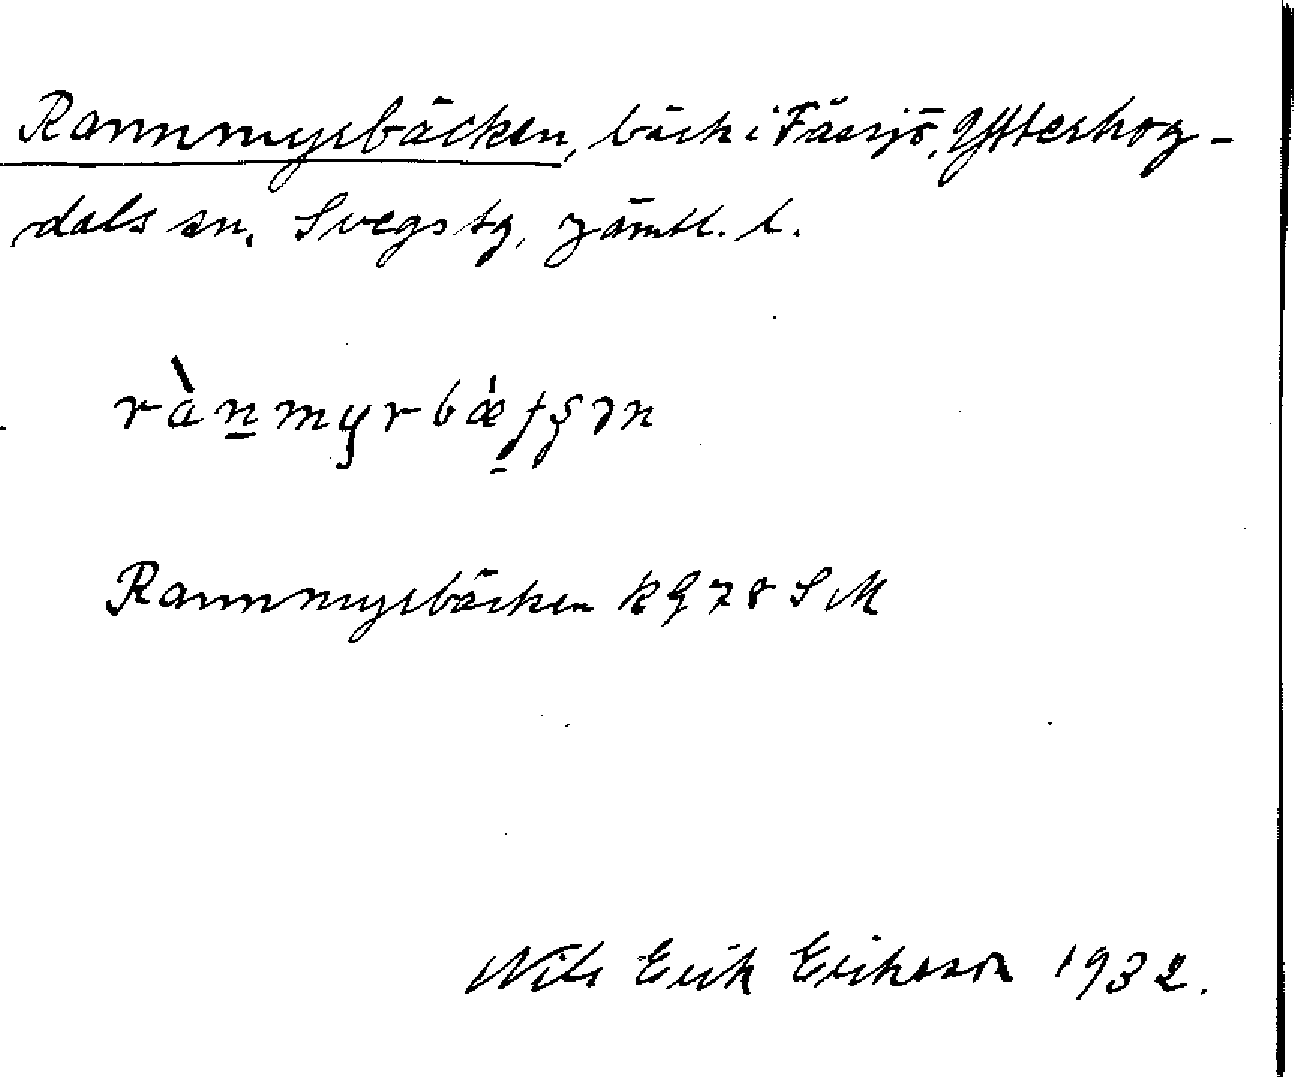 Rannmyrbäcken, bäck i Fåssjö, Ytterhog-
dals sn. Svegs tg, Jämtl. l.
rànmyrbǽʃʂən
Rannmyrbäcken k 978 SM
Nils Erik Eriksson 1932.